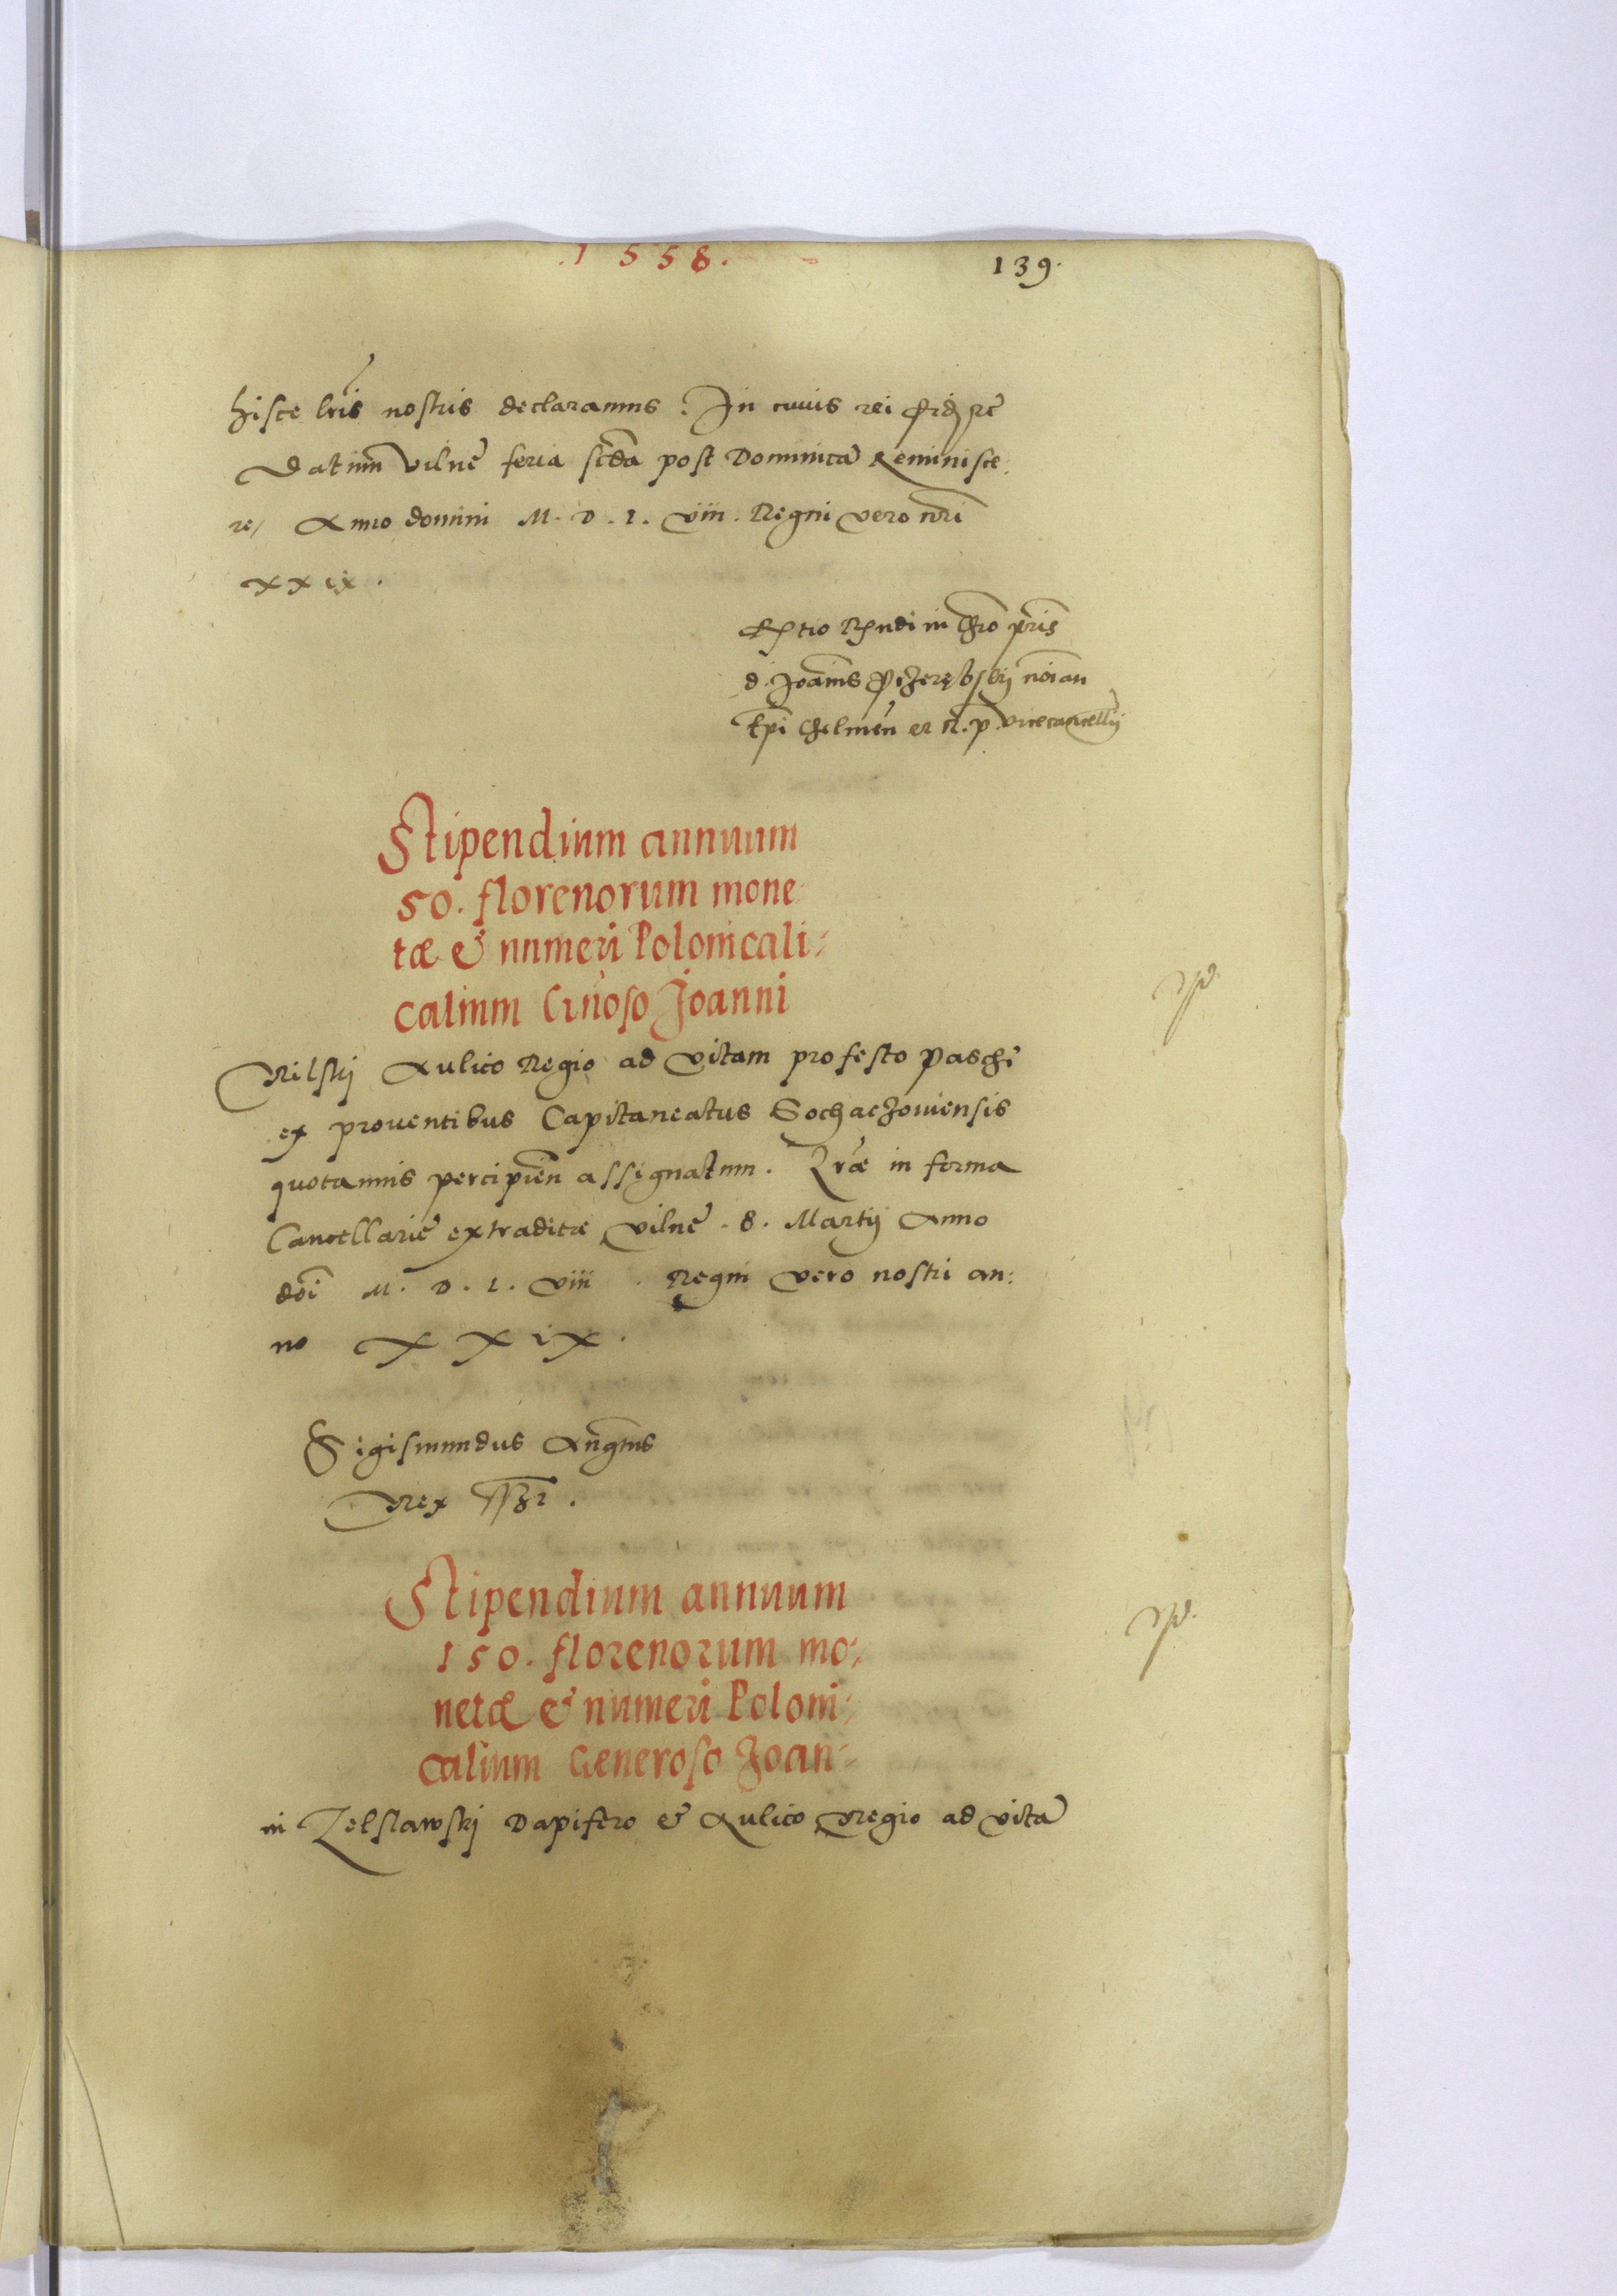 .1558.
139.
hisce lris nostris declaramus. In cuius rei fidē etc
Datum Vilnę feria scđa post Dominicā Reminisce
re, Anno domini M. D. L. viii. Regni vero nri
xxix.
Rṇdi in Chro pris
d. Joānis Przerębskij noīan
Epi Chelmeñ et R. P. vicecancellij
Stipendium annuum
50. florenorum mone
tæ & numeri Polonicali=
calium Gñoso Joanni
Rilskj Aulico Regio ad vitam pro festo Paschę
ex prouentibus Capitaneatus Sochaczouiensis
quotannis percipień assignatum. Lræ in forma
Cancellarię extraditæ Vilnę . 8. Martij Anno
dni M. D. L. viii . Regni vero nostri an:
no XXiX.
Sigismundus Augūs
Rex sszt.
Stipendium annuum
150. florenorum mo=
netæ & numeri Poloni=
calium Generoso Joan=
ni Zelslawskj Dapifero & Aulico Regio ad vitā